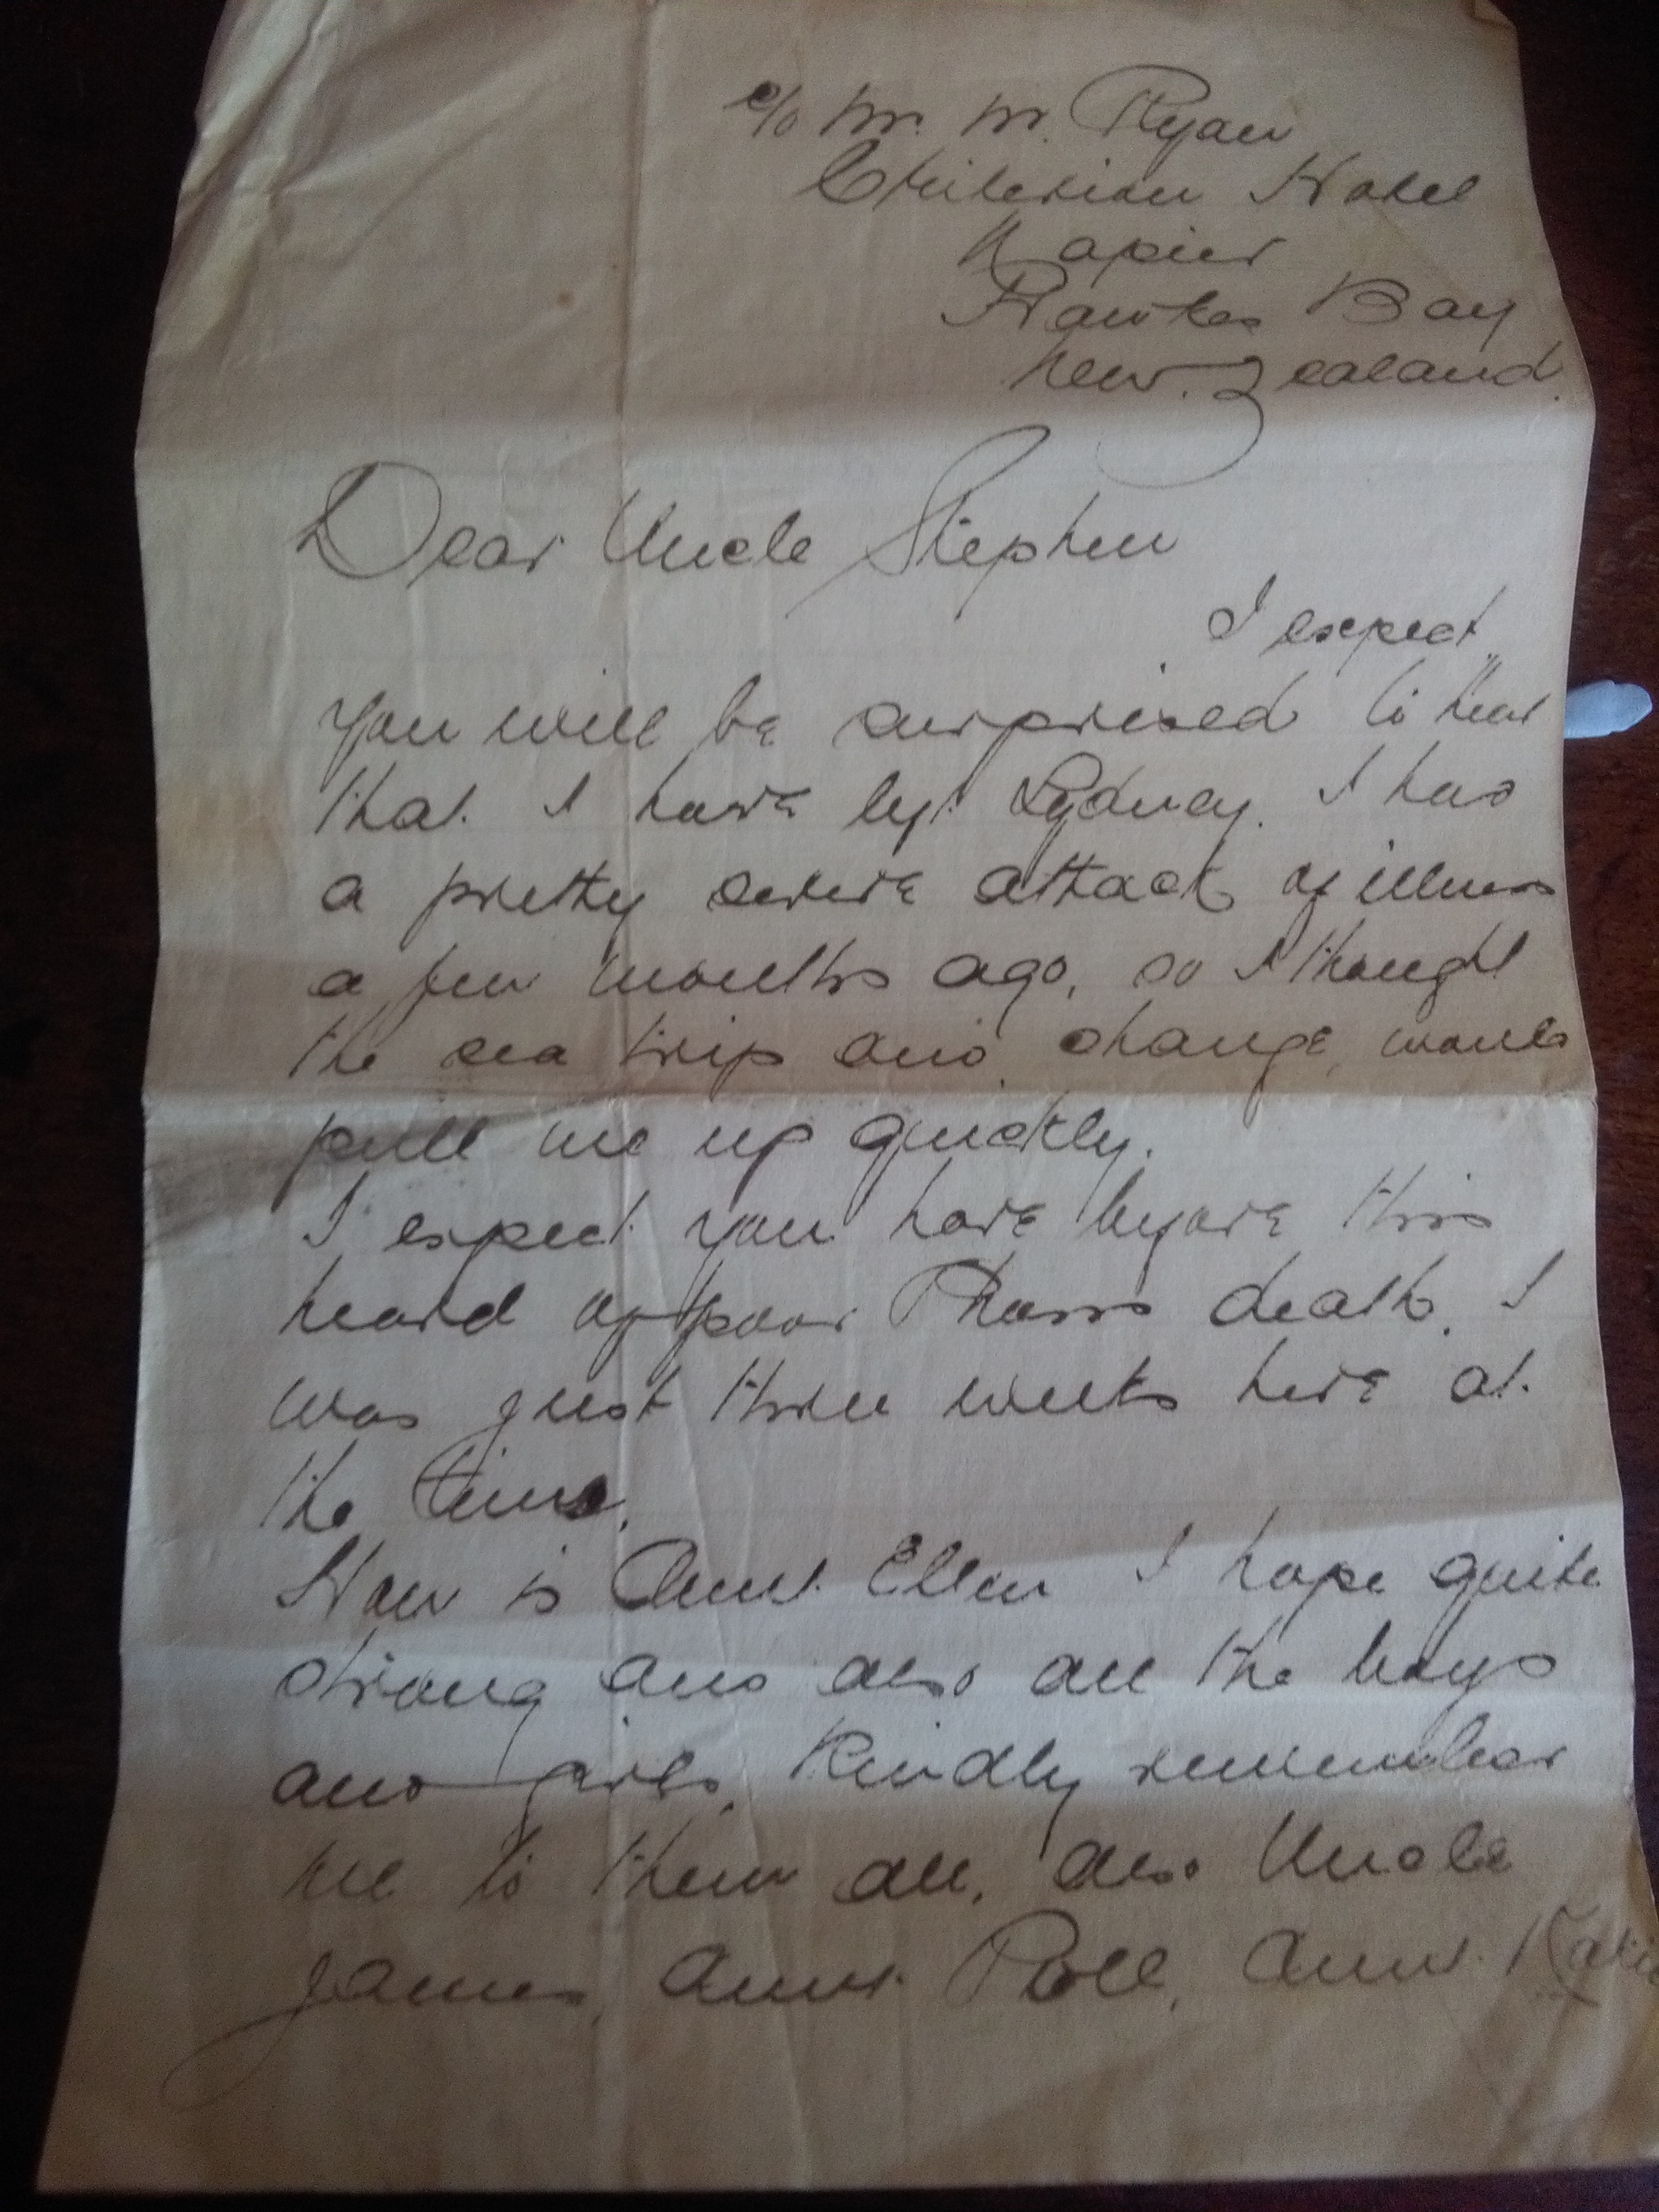 c/o Mr. M. Ryan
Criterion Hotel
Napier
Hawkes Bay
New. Zealand.
Dear Uncle Stephen
I expect
you will be surprised to hear
that I have left Sydney. I had
a pretty severe attack of illness
a few months ago, so I thought
the sea trip and change, would
pull me up quickly.
I expect you have before this
heard of poor Thoms death. I
was just three weeks here at
the time.
How is Aunt Ellen I hope quite
strong and also all the boys
and girls. Kindly remember
me to them all, also Uncle
James, Aunt Poll, Aunt Katie